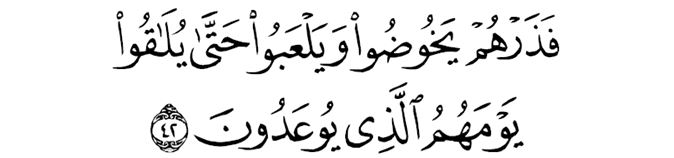 فَذَرْهُمْ يَخُوضُوا۟ وَيَلْعَبُوا۟ حَتَّىٰ يُلَٰقُوا۟
يَوْمَهُمُ ٱلَّذِى يُوعَدُونَ ٤٢